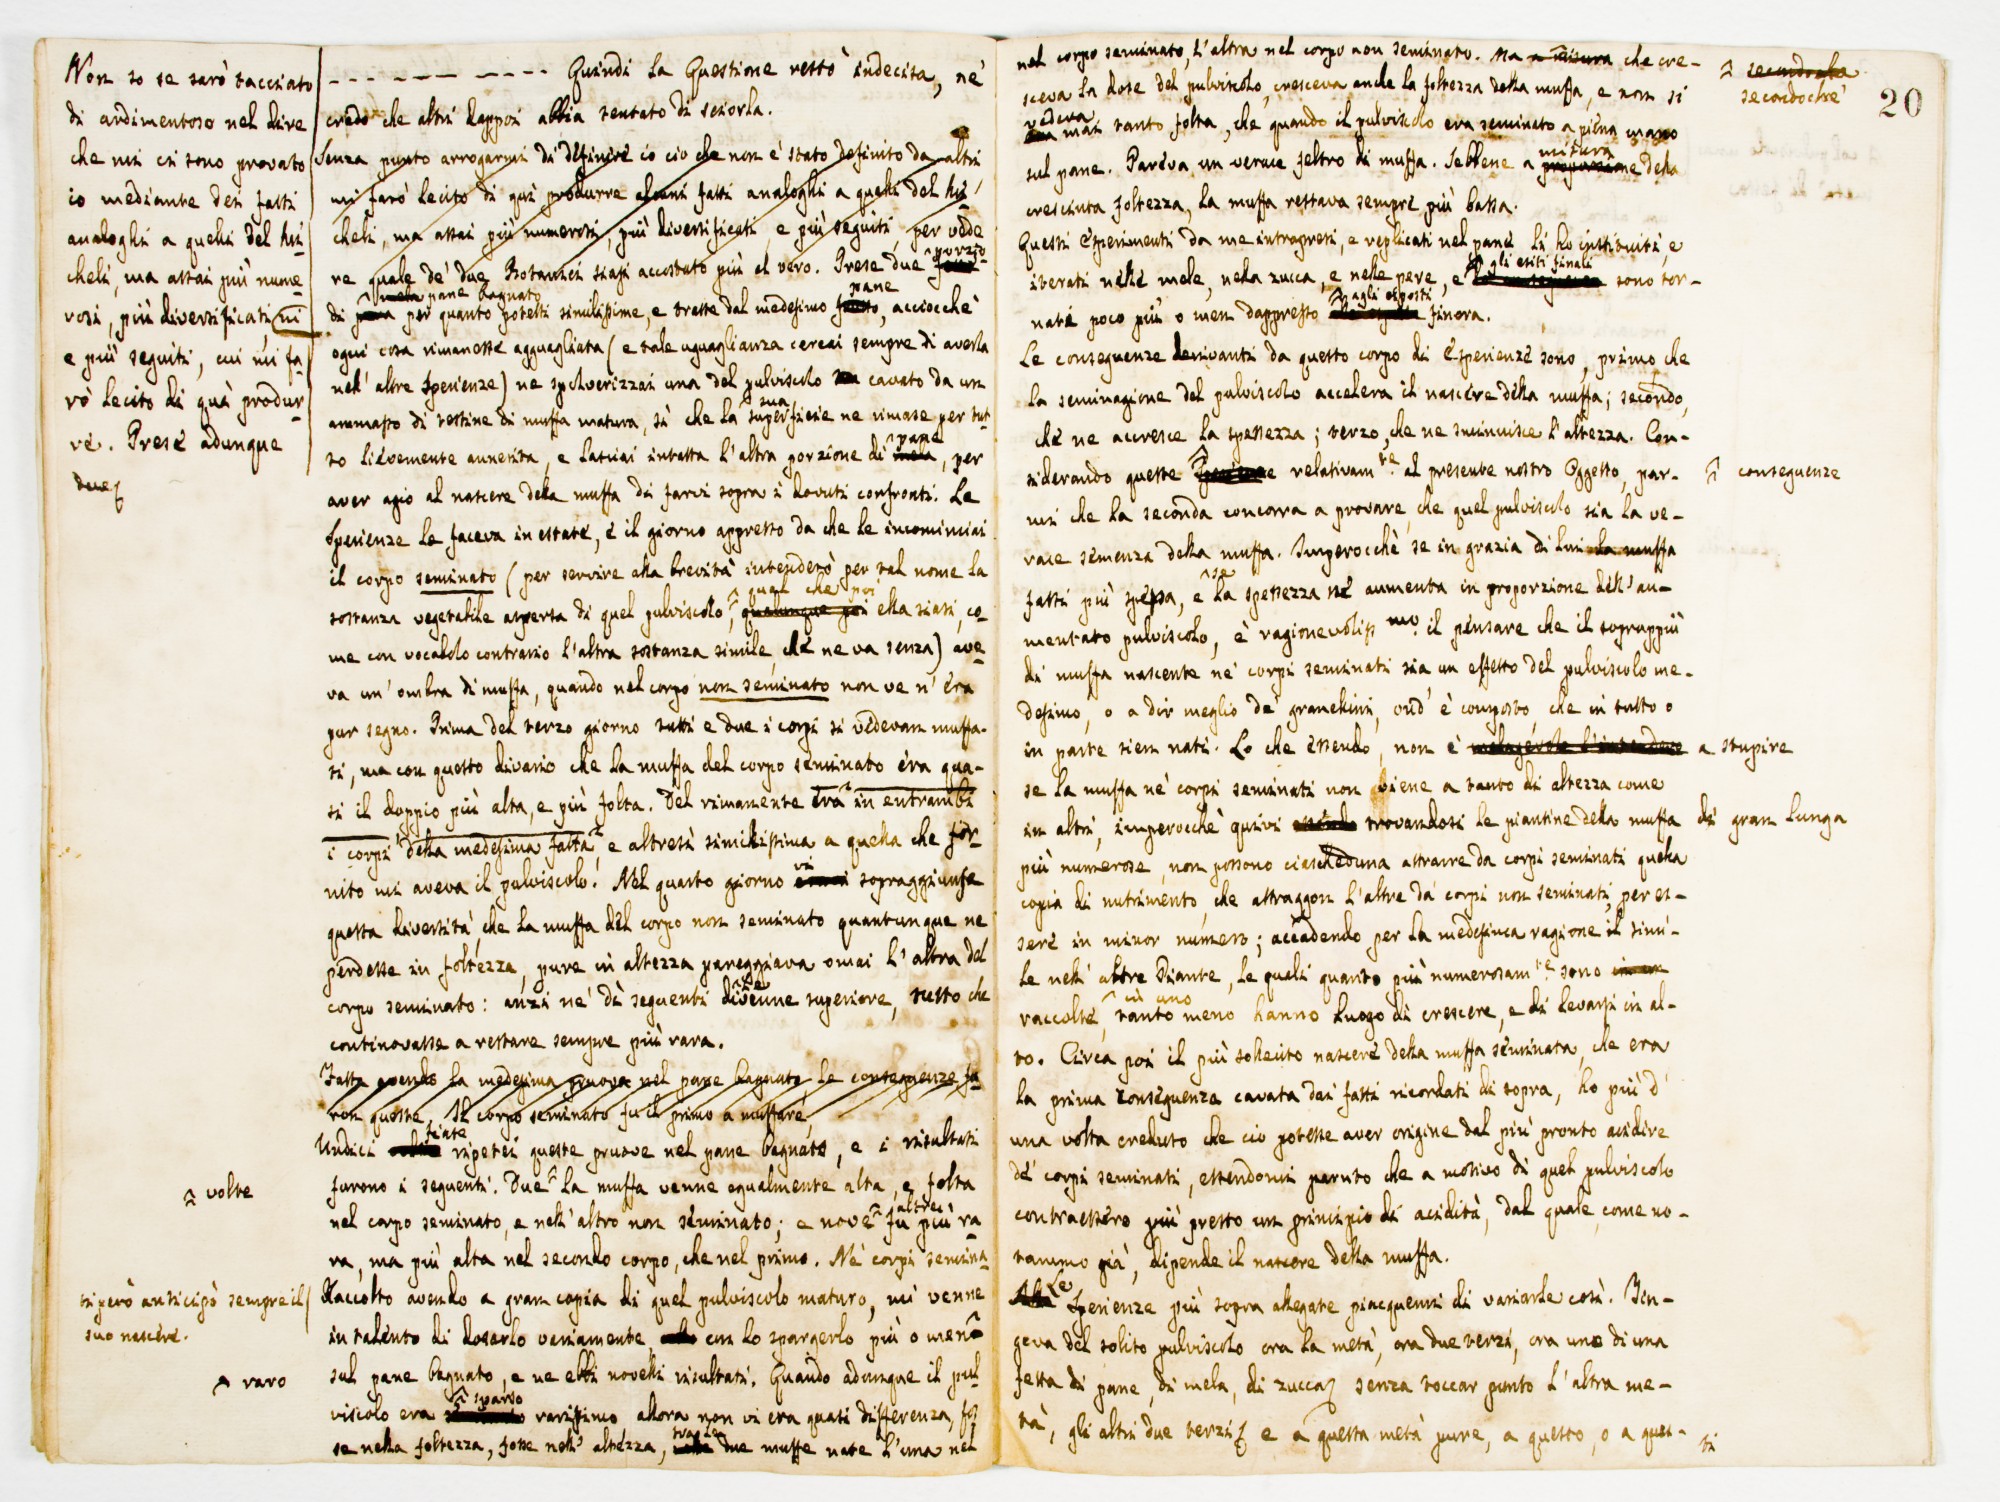 Non so se sarò tacciato
di ardimentoso nel dire
che mi ci sono provato
io mediante dei fatti
analoghi a quelli del Mi
cheli, ma assai più nume
rosi, più diversificati,
e più seguiti, cui mi fa
rò lecito di quà produr
re. Prese adunque
due
volte
si però anticipò sempre il
suo nascere.
raro
Quindi la Questione restò indecisa, nè
credo che altri dappoi abbia tentato di sciorla.
Senza punto arrogarmi di definire io ciò che non è stato definito da altri
mi farò lecito di quì produrre alcuni fatti analoghi a quelli del Mi
cheli, ma assai più numerosi, più diversificati, e più seguiti, per vede
re quale de' due Botanici siasi accostato più al vero. Prese due porzio
mela pane bagnato pane
di per quanto potessi similissime, e tratte dal medesimo, acciocchè
ogni cosa rimanesse agguagliata (e tale uguaglianza cercai sempre di averla
nell' altre Sperienze) ne spolverizzai una del pulviscolo cavato da un
sua
ammasso di testine di muffa matura, sì che la superficie ne rimase per tut
pane
to lievemente annerita, e lasciai intatta l'altra porzione di mela, per
aver agio al nascere della muffa di farvi sopra i dovuti confronti. Le
Sperienze le faceva in estate, e il giorno appresso da che le incominciai
il corpo seminato (per servire alla brevità intenderò per tal nome la
qual che poi
sostanza vegetabile aspersa di quel pulviscolo, qualunque poi ella siasi, co
me con vocabolo contrario l'altra sostanza simile, che ne va senza) ave
va un' ombra di muffa, quando nel corpo non seminato non ve n' era
pur segno. Prima del terzo giorno tutti e due i corpi si vedevan muffa-
ti, ma con questo divario che la muffa del corpo seminato era qua-
si il doppio più alta, e più folta. Del rimanente era in entrambi
i corpi della medesima fatta, e altresì similissima a quella che for-
vi
nito mi aveva il pulviscolo. Nel quarto giorno sopraggiunse
questa diversità che la muffa del corpo non seminato quantunque ne
perdesse in foltezza, pure in altezza pareggiava omai l' altra del
corpo seminato: anzi ne' dì seguenti divenne superiore, tutto che
continovasse a restare sempre più rara.
Fatta avendo la medesima pruova nel pane bagnato le conseguenze fu
ron queste. Il corpo seminato fu il primo a muffare,
fiate
Undici ripetei queste pruove nel pane bagnato, e i risultati
furono i seguenti. Due la muffa venne egualmente alta, e folta
altre
nel corpo seminato, e nell' altro non seminato; e nove fu più ra
ra, ma più alta nel secondo corpo, che nel primo. Ne' corpi semina
Raccolto avendo a gran copia di quel pulviscolo maturo, mi venne
in talento di dosarlo variamente, con lo spargerlo più o meno
sul pane bagnato, e ne ebbi novelli risultati. Quando adunque il pul
sparso
viscolo era rarissimo allora non vi era quasi differenza, fos
tra le
se nella foltezza, fosse nell' altezza, due muffe nate l'una nel
20
nel corpo seminato, l'altra nel corpo non seminato. Ma a misura che cre-
sceva la dose del pulviscolo, cresceva anche la foltezza della muffa, e non si
vedeva
mai tanto folta, che quando il pulviscolo era seminato a piena mano
misura
sul pane. Pareva un verace feltro di muffa. Sebbene a proporzione della
cresciuta foltezza, la muffa restava sempre più bassa.
Questi esperimenti da me intrapresi, e replicati nel pane li ho istituiti, e
gli esiti finali
iterati nelle mele, nella zucca, e nelle pere, e sono tor-
agli esposti
nati poco più o men dappresso finora.
Le conseguenze derivanti da questo corpo di Esperienze sono, primo che
la seminagione del pulviscolo accelera il nascere della muffa; secondo,
che ne accresce la spessezza; terzo, che ne sminuisce l'altezza. Con-
siderando queste relativamte al presente nostro Oggetto, par-
mi che la seconda concorra a provare, che quel pulviscolo sia la ve-
race semenza della muffa. Imperocchè se in grazia di lui la muffa
se
fassi più spessa, e la spessezza ne aumenta in proporzione dell' au-
mentato pulviscolo, è ragionevoliss mo il pensare che il soprappiù
di muffa nascente ne' corpi seminati sia un effetto del pulviscolo me-
desimo, o a dir meglio de' granellini, ond' è composto, che in tutto o
in parte sien nati. Lo che essendo, non è malagevole l'intendere a stupire
se la muffa ne' corpi seminati non viene a tanto di altezza come
in altri, imperocchè quivi essendo trovandosi le piantine della muffa di gran lunga
più numerose, non possono ciascheduna attrarre da corpi seminati quella
copia di nutrimento, che attraggon l'altre da' corpi non seminati, per es-
sere in minor numero; accadendo per la medesima ragione il simi-
le nell' altre Piante, le quali quanto più numerosamte sono
in uno
raccolte, tanto meno hanno luogo di crescere, e di levarsi in al-
to. Circa poi il più sollecito nascere della muffa seminata, che era
la prima conseguenza cavata dai fatti ricordati di sopra, ho più d'
una volta creduto che ciò potesse aver origine dal più pronto acidire
de' corpi seminati, essendomi paruto che a motivo di quel pulviscolo
contraessero più presto un principio di acidità, dal quale, come no-
tammo già, dipende il nascere della muffa.
Le Sperienze più sopra allegate piacquemi di variarle così. Tin-
geva del solito pulviscolo ora la metà, ora due terzi, ora uno di una
fetta di pane, di mela, di zucca senza toccar punto l'altra me-
tà, gli altri due terzi e a questa metà pure, a questo, o a ques-
ti
secondochè
secondochè
conseguenze